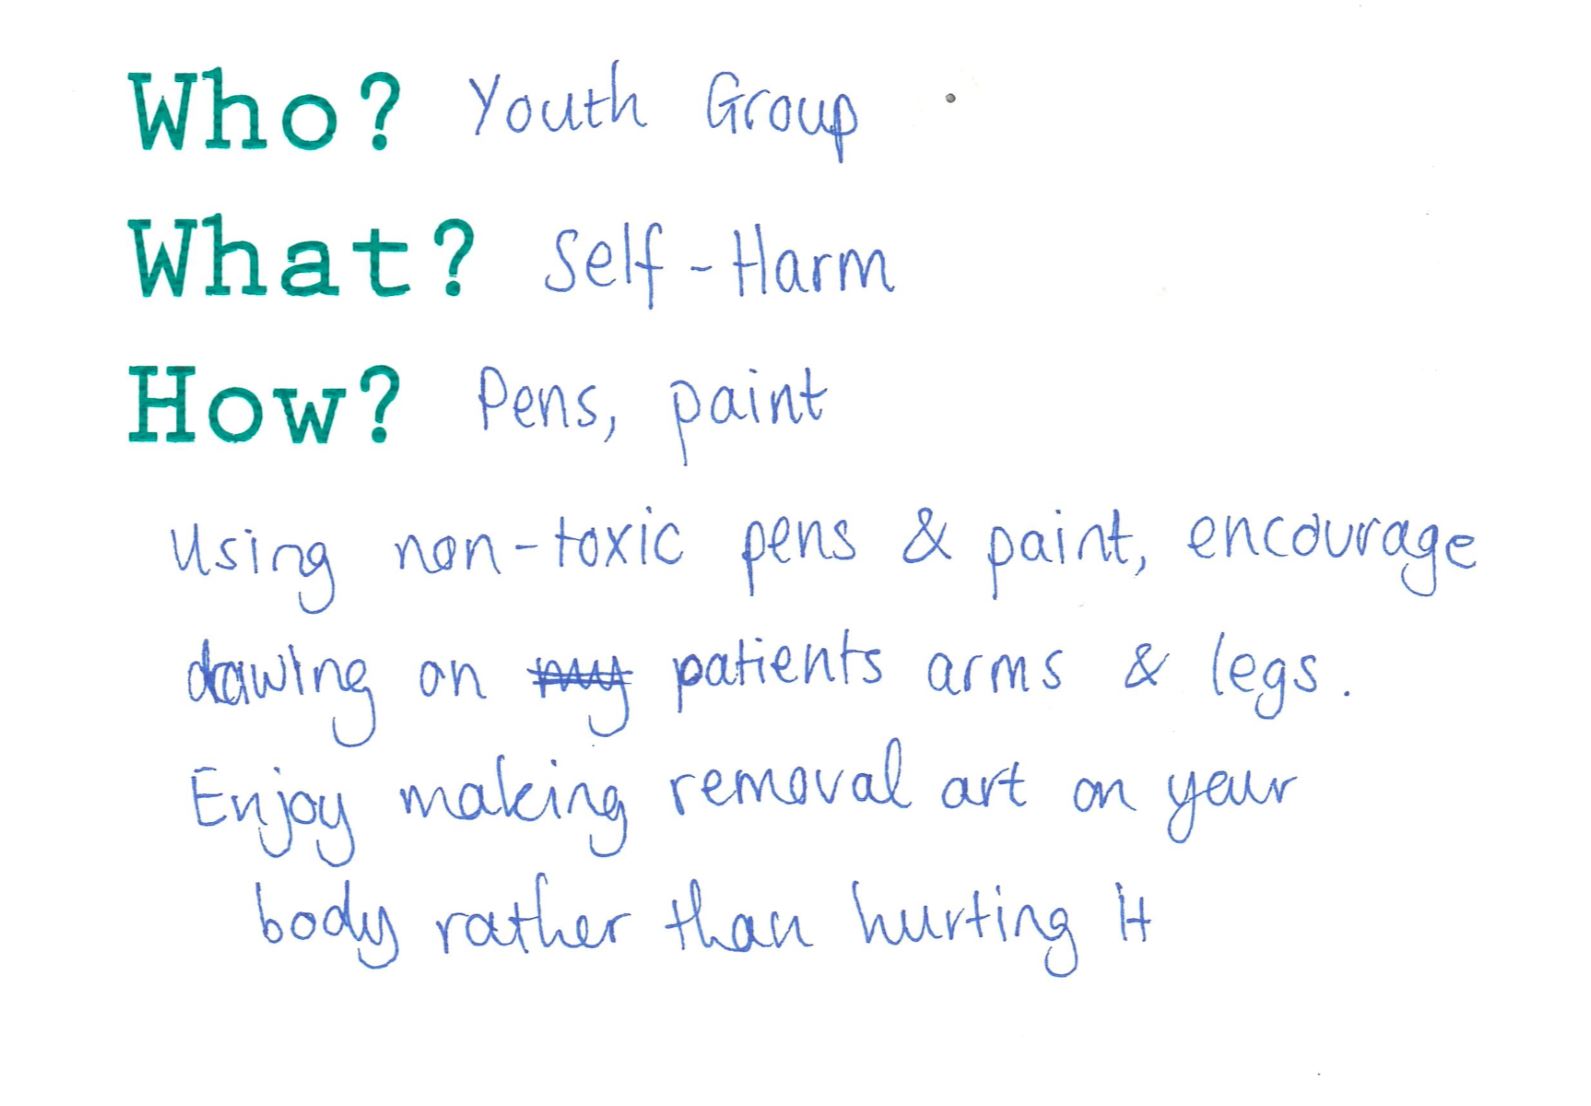 Who? Youth Group
What? Self-Harm
How? Pens, paint
Using non-toxic pens & paint, encourage
drawing on my patients arms & legs.
Enjoy making removal art on your
body rather than hurting it